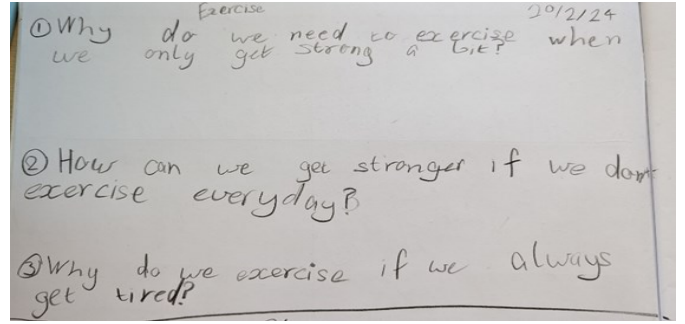 Exercise
20/2/24
① Why do we need to exercise when
we only get strong a bit?
② How can we get stronger if we don't
exercise everyday?
③ Why do we exercise if we always
get tired?